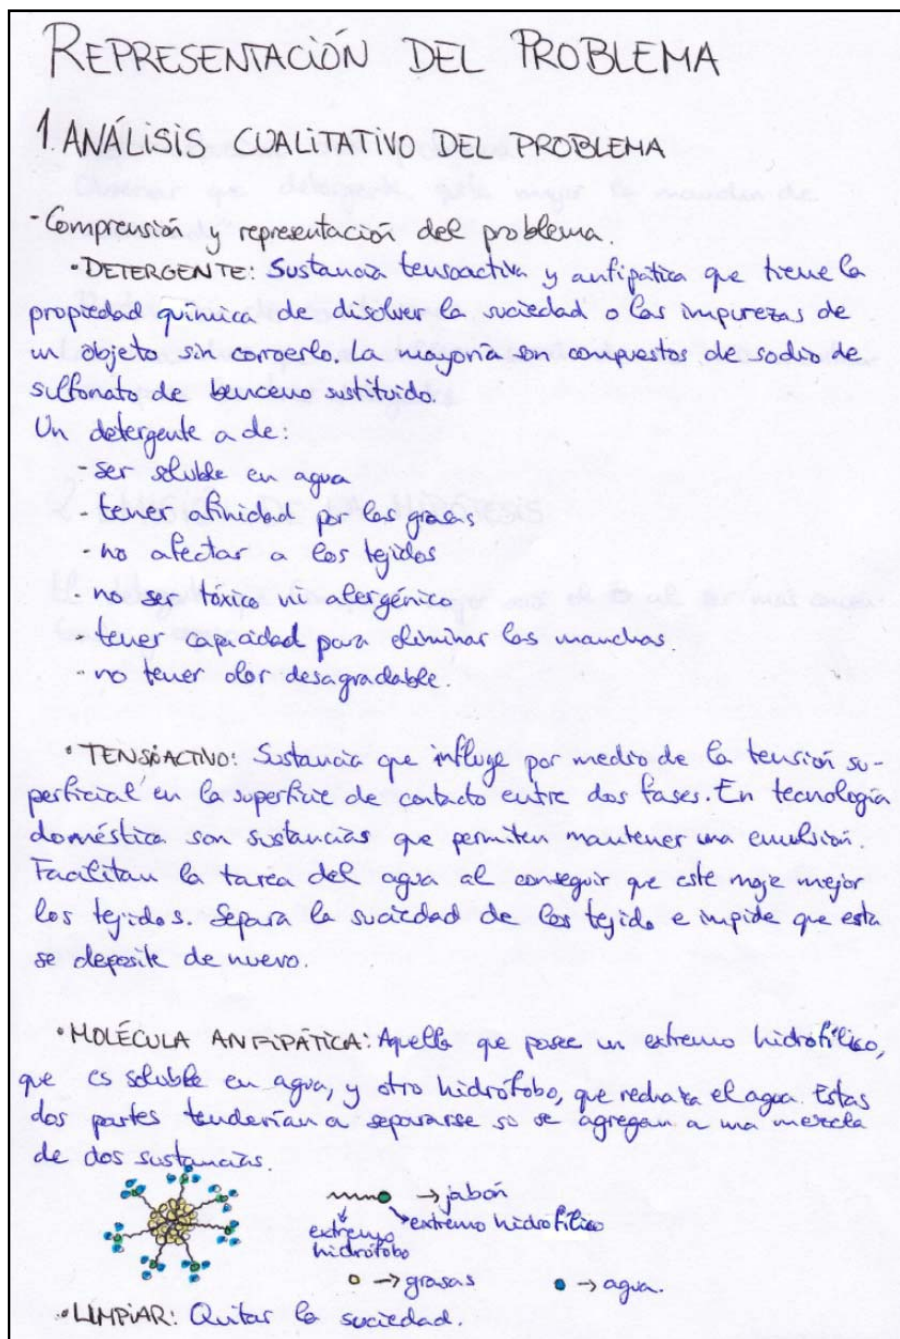 REPRESENTACIÓN DEL PROBLEMA
1. ANÁLISIS CUALITATIVO DEL PROBLEMA
- Comprensión y representación del problema.
• DETERGENTE: Sustancia tensoactiva y anfipática que tiene la
propiedad química de disolver la suciedad o las impurezas de
un objeto sin corroerlo. La mayoría son compuestos de sodio de
sulfonato de benceno sustituido.
Un detergente a de:
- ser soluble en agua
- tener afinidad por las grasas
- no afectar a los tejidos
- no ser tóxico ni alergénico
- tener capacidad para eliminar las manchas
- no tener olor desagradable.
• TENSOACTIVO: Sustancia que influye por medio de la tensión su-
perficial en la superficie de contacto entre dos fases. En tecnología
doméstica son sustancias que permiten mantener una emulsión.
Facilitan la tarea del agua al conseguir que este moje mejor
los tejidos. Separa la suciedad de los tejido e impide que esta
se deposite de nuevo.
• MOLÉCULA ANFIPÁTICA: Aquella que posee un extremo hidrófilico,
que es soluble en agua, y otro hidrófobo, que rechaza el agua. Estas
dos partes tenderían a separarse si se agregan a una mezcla
de dos sustancias.
→ jabón
extremo hidrófobo
extremo hidrofílico
→ grasas
→ agua.
• LIMPIAR: Quitar la suciedad.